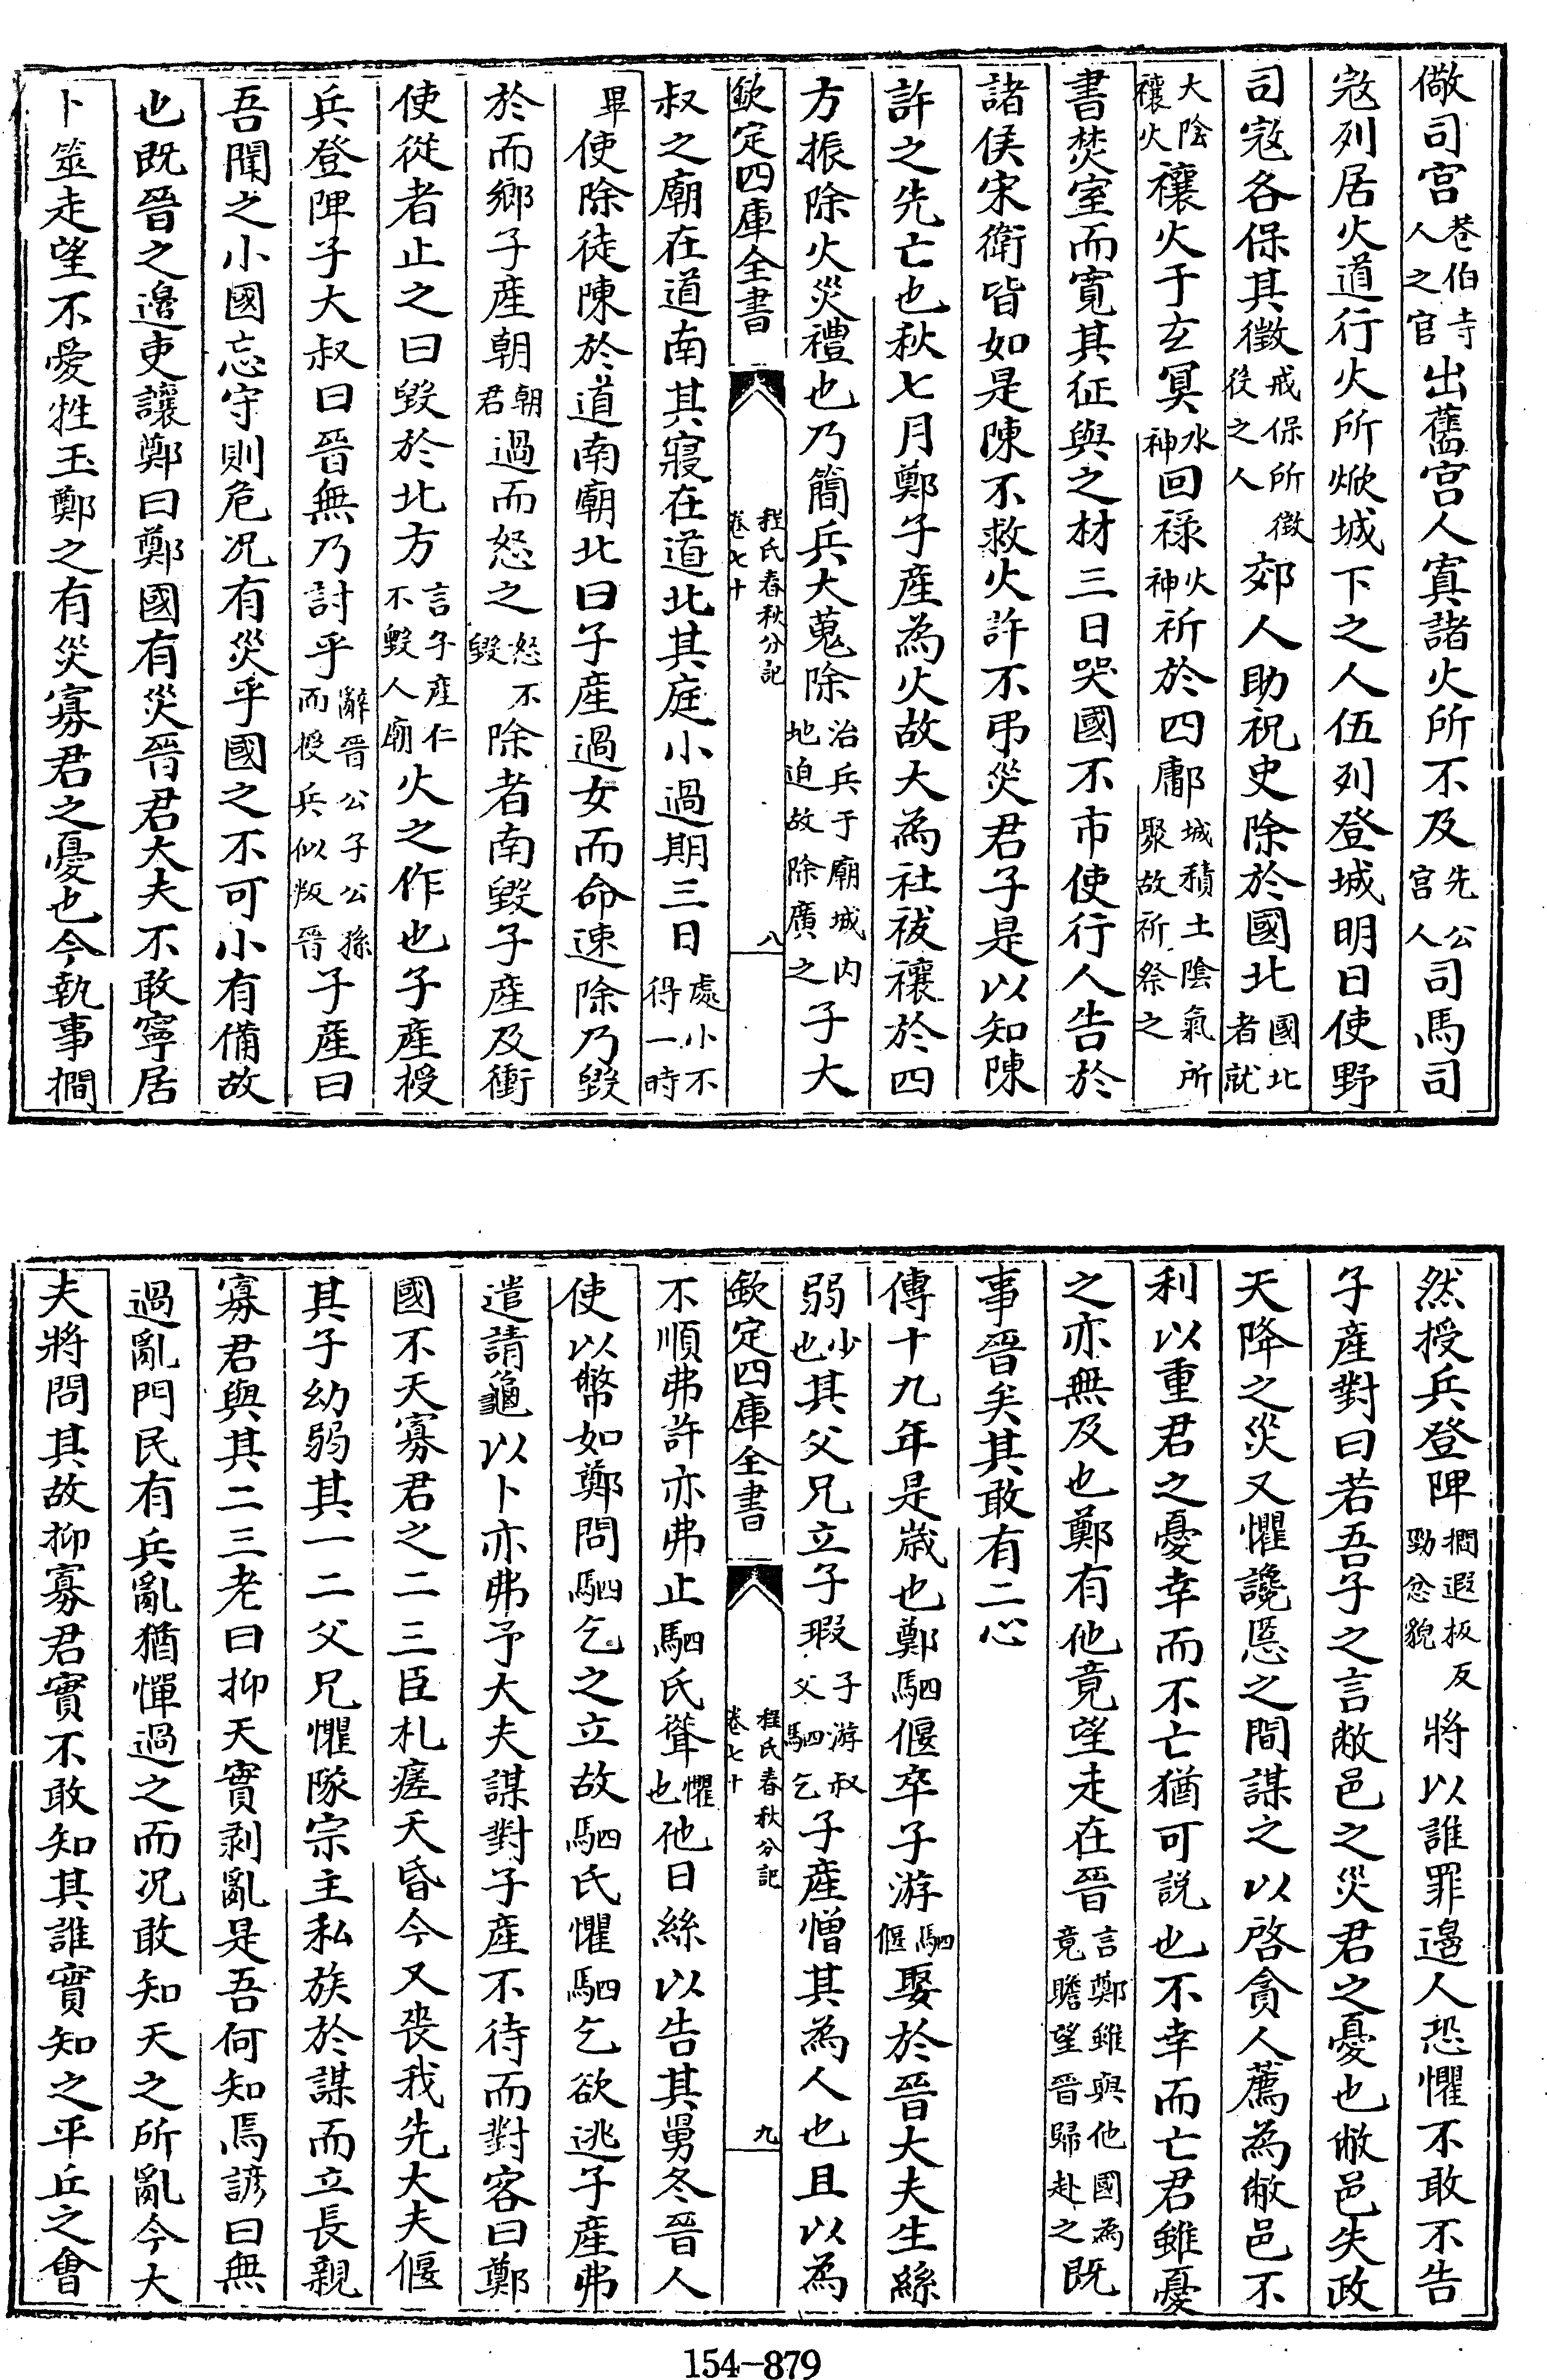 儆司宮巷伯寺人之官出舊宫人寘諸火所不及先公宫人司馬司
寇列居火道行火所焮城下之人伍列登城明日使野
司寇各保其徵戒保所徴役之人郊人助祝史除於國北國北者就
大隂禳火禳火于玄冥水神回禄火神祈於四鄘城積土隂氣所聚故祈祭之
書焚室而寛其征與之材三日哭國不市使行人告於
諸侯宋衛皆如是陳不救火許不弔災君子是以知陳
許之先亡也秋七月鄭子産為火故大為社祓禳於四
方振除火災禮也乃簡兵大蒐除治兵于廟城内地迫故除廣之子大
欽定四庫全書 程氏春秋分記 卷七十 八
叔之廟在道南其寢在道北其庭小過期三日處小不得一時
畢使除徒陳於道南廟北曰子産過女而命速除乃毀
於而鄉子産朝朝君過而怒之怒不毀除者南毀子産及衝
使從者止之曰毀於北方言子産仁不毀人廟火之作也子産授
兵登陴子大叔曰晉無乃討乎辭晉公子公孫而授兵似叛晉子産曰
吾聞之小國忘守則危况有災乎國之不可小有備故
也既晉之邉吏讓鄭曰鄭國有災晉君大夫不敢寧居
卜筮走望不愛牲玉鄭之有災寡君之憂也今執事撊
然授兵登陴撊遐板反勁忿貌將以誰罪邉人恐懼不敢不告
子産對曰若吾子之言敝邑之災君之憂也敝邑失政
天降之災又懼讒慝之間謀之以啓貪人薦為敝邑不
利以重君之憂幸而不亡猶可説也不幸而亡君雖憂
之亦無及也鄭有他竟望走在晉言鄭雖與他國為竟瞻望晉歸赴之既
事晉矣其敢有二心
傳十九年是歳也鄭駟偃卒子游駟偃娶於晉大夫生絲
弱少也其父兄立子瑕子游叔父駟乞子産憎其為人也且以為
欽定四庫全書 程氏春秋分記 卷七十 九
不順弗許亦弗止駟氏聳懼也他日絲以告其舅冬晉人
使以幣如鄭問駟乞之立故駟氏懼駟乞欲逃子産弗
遣請龜以卜亦弗予大夫謀對子産不待而對客曰鄭
國不天寡君之二三臣札瘥夭昏今又喪我先大夫偃
其子幼弱其一二父兄懼隊宗主私族於謀而立長親
寡君與其二三老曰抑天實剥亂是吾何知焉諺曰無
過亂門民有兵亂猶憚過之而况敢知天之所亂今大
夫將問其故抑寡君實不敢知其誰實知之平丘之會
154-879